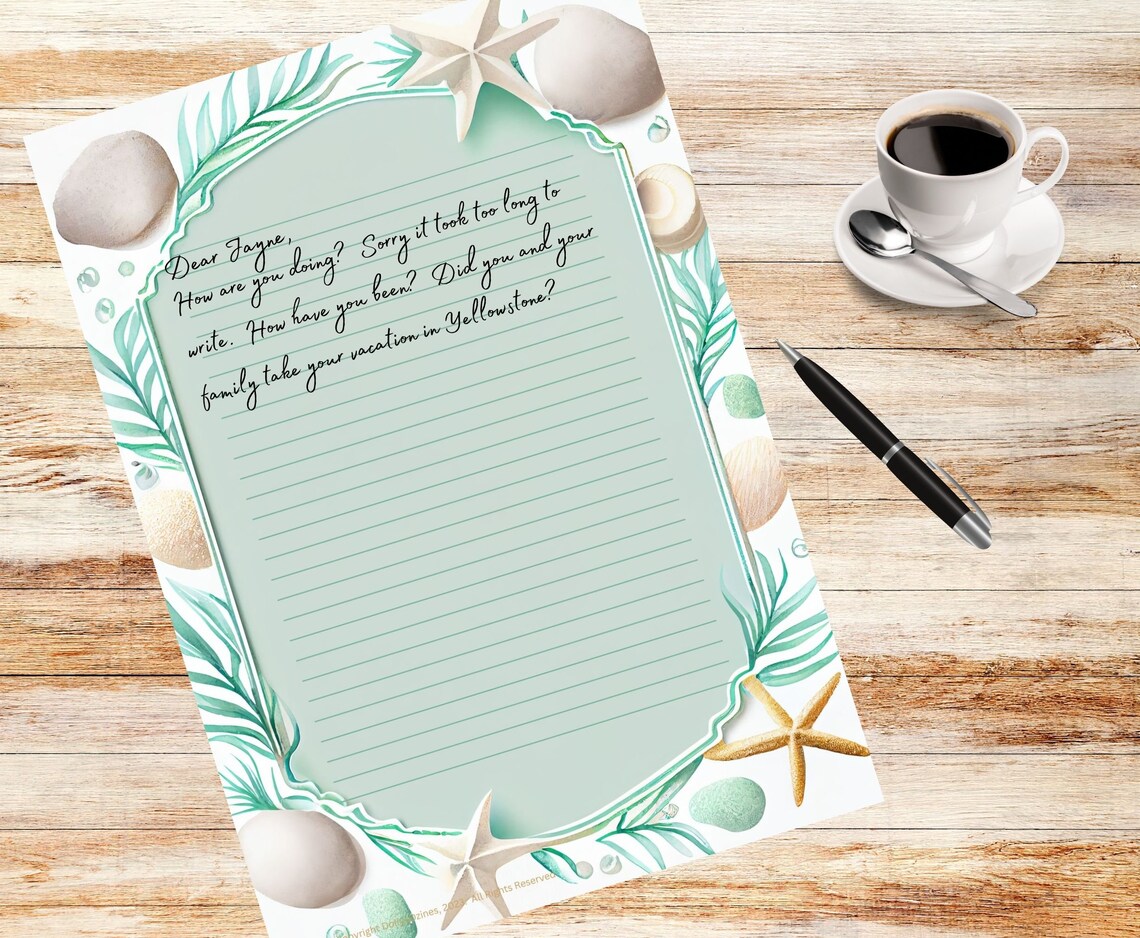 Dear Jayne,
How are you doing? Sorry it took too long to
write. How have you been? Did you and your
family take your vacation in Yellowstone?
2023 All Rights Reserved